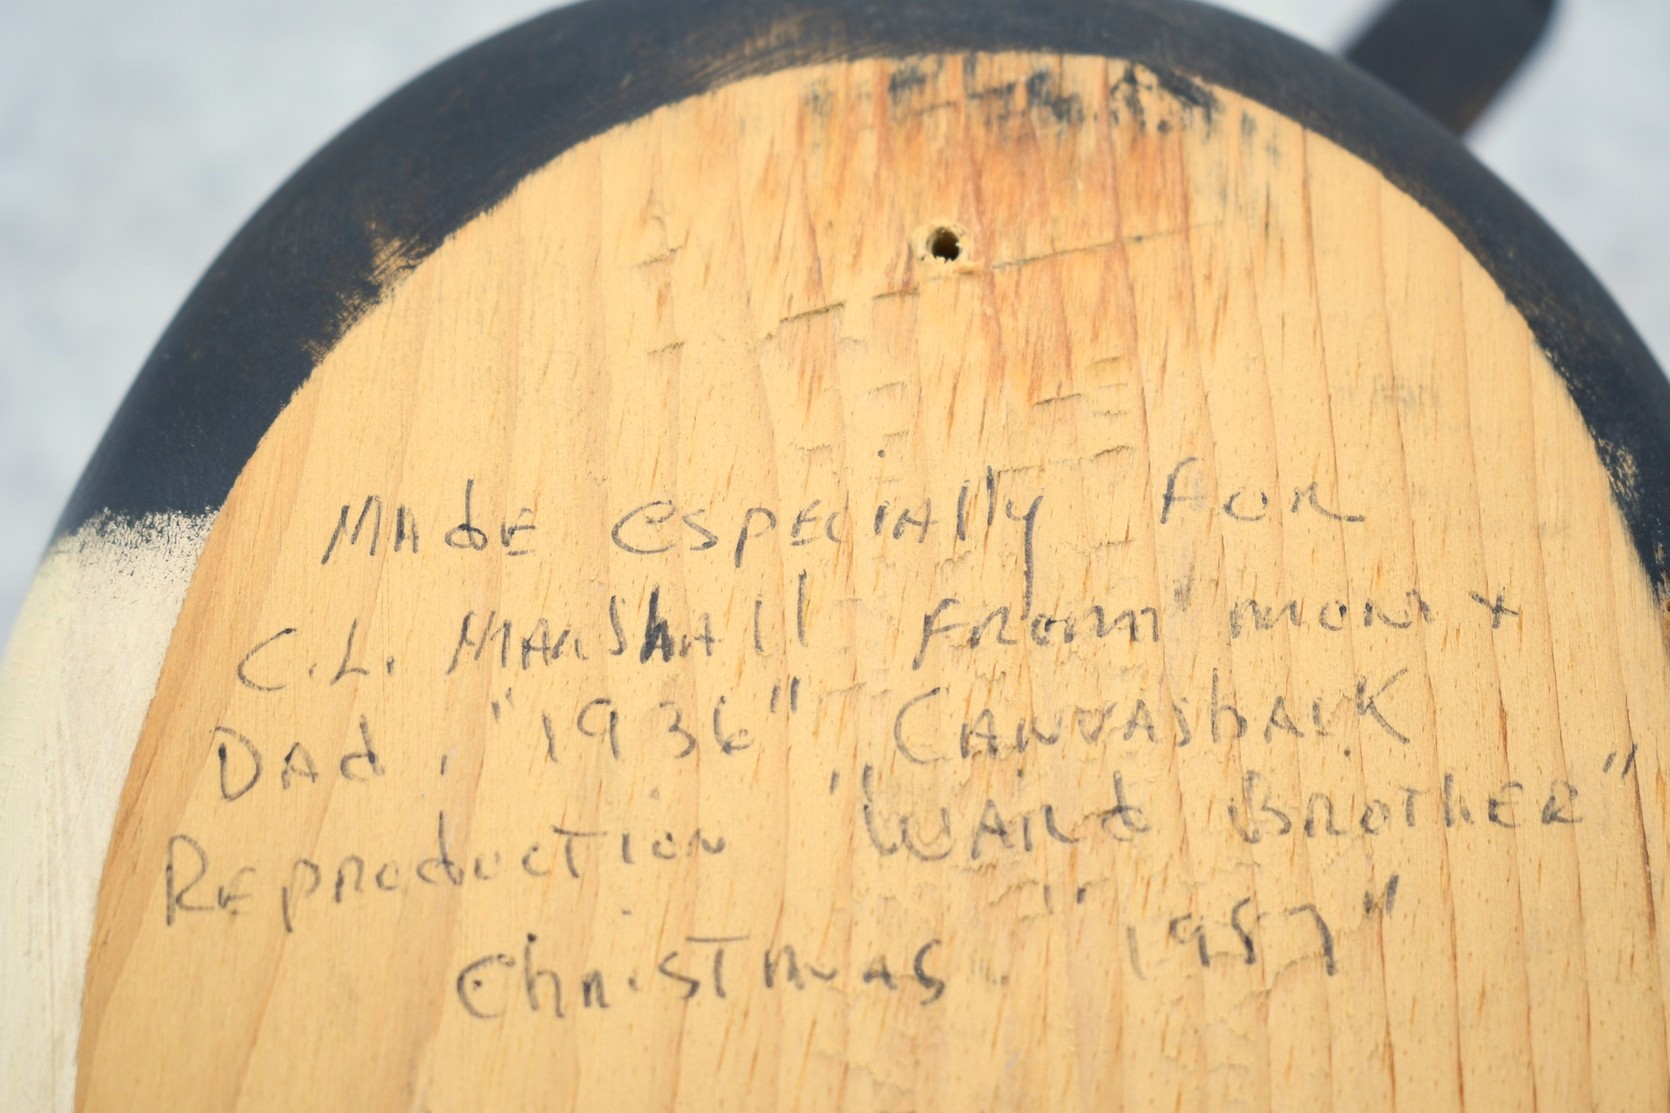 Made especially for
C.L. Marshall from mom +
Dad, "1936" Canvasback
Reproduction "Ward Brother"
Christmas "1987"